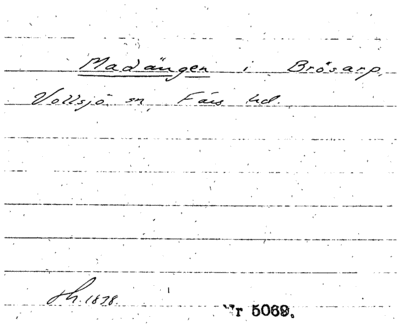 Madängen i Brösarp
Vollsjö sn, Färs hd.
1878.
Nr 5069.